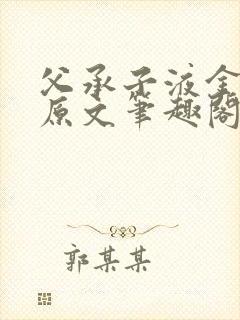 父承子液全
原文笔趣阁
郭某某